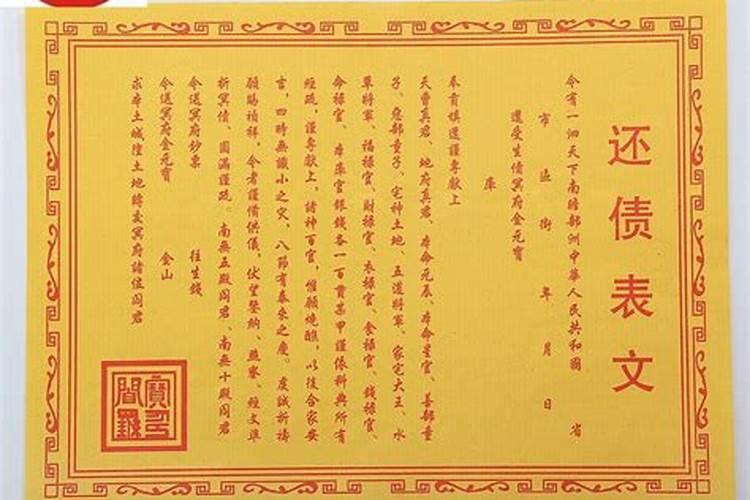 还债表文
今有一泗天下南瞻部洲中華人民共和國 省
市 區 街 年 月 日
還受生債冥府金元寶
庫
奉負填還謹專獻上
天曹真君、地府真君、本命元辰、本命星官、善部童
子、惡部童子、宅神土地、五道將軍、家宅大王、水
草將軍、福祿官、財祿官、衣祿官、食祿官、錢祿官、
命祿官、本庫官銀錢各一百貫某甲謹依科典所有
經疏，謹專獻上，諸神百官，惟願燒醮，以後合家安
吉，四時無讖小之災，八節有泰來之慶。虔誠祈禱
願賜禎祥，今者謹備供儀，伏望鑒納、燕寥、經文準
折冥債、圓滿謹疏。南無五殿阎君、南無十殿阎君
今送冥府鈔票 往生錢
今送冥府金元寶 金山
求本土城隍土地轉交冥府諸位阎君